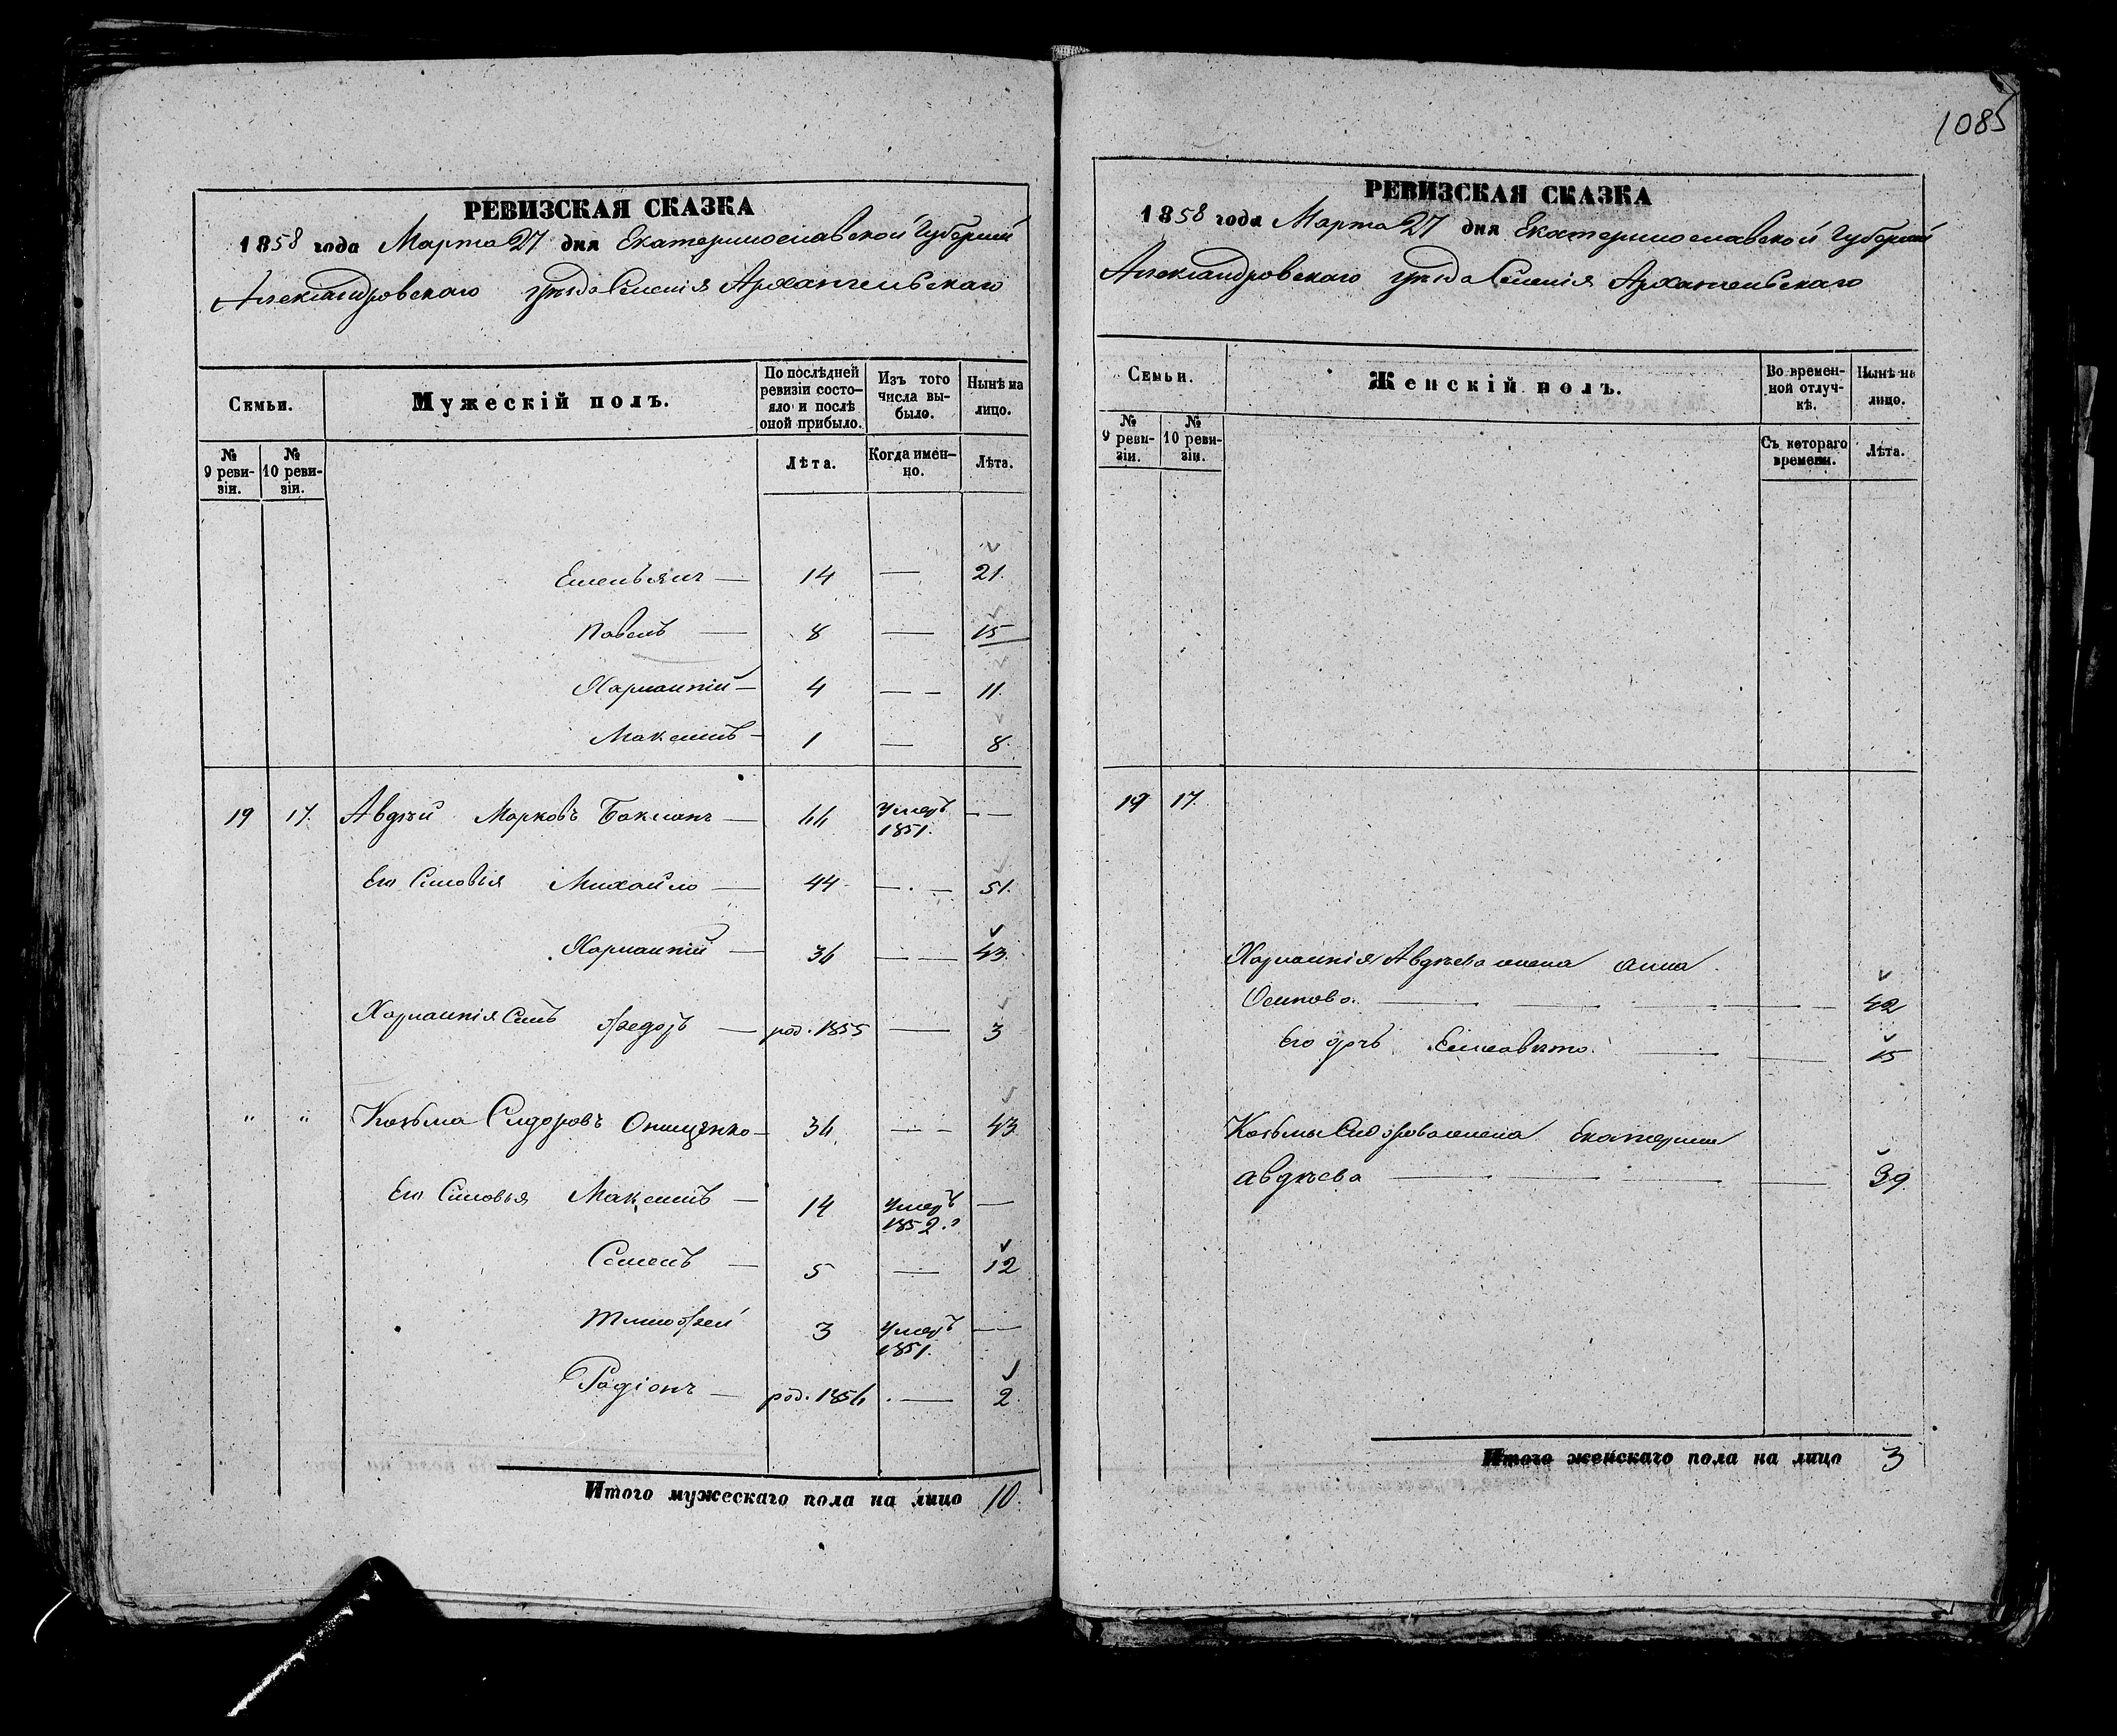 1085
РЕВИЗСКАЯ СКАЗКА
1858 года Марта 27 дня Екатеринославской Губернии
Александровского уѣзда Селенія Архангельскаго
Семьи.
Мужескій полъ.
По послѣдней ревизіи состояло и послѣ оной прибыло.
Изъ того числа выбыло.
Нынѣ на лицо.
№ 9 ревизіи.
№ 10 ревизіи.
Лѣта.
Когда именно.
Лѣта.
Емельянъ — 14 — 21.
Павелъ — 8 — 15
Харлампій — 4 — — 11.
Максимъ — 1 — 8.
19 17. Авдѣй Марковъ Бакланъ — 66 Умеръ 1851. — —
Его Сыновья Михайло — 44 — . — 51.
Харлампій — 36 — — 43.
Харлампія Сынъ Ѳедоръ — род. 1855 — 3
" " Козьма Сидоровъ Онищенко — 36 — — 43
Его Сыновья Максимъ — 14 Умеръ 1852. —
Семенъ — 5 — 12
Тимоѳей 3 Умеръ 1851. —
Радіонъ — род. 1856 . — 2.
Итого мужескаго пола на лицо 10.
РЕВИЗСКАЯ СКАЗКА
1858 года Марта 27 дня Екатеринославской Губернии
Александровского уѣзда Селенія Архангельскаго
Семьи.
Женскій полъ.
Во временной отлучкѣ.
Нынѣ на лицо.
№ 9 ревизіи.
№ 10 ревизіи.
Съ котораго времени.
Лѣта.
19 17.
Харлампія Авдѣева жена Анна
Осипова. — — — — 42
Его дочь Елисавета. — — 15
Козьмы Сидорова жена Екатерина
Авдѣева — — — — 39
Итого женскаго пола на лицо 3